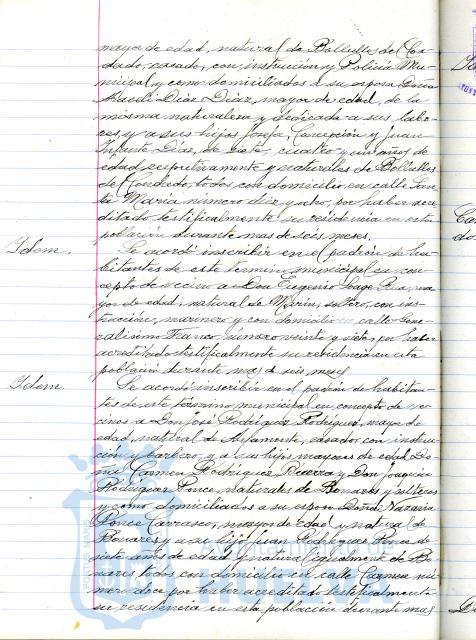 mayor de edad, natural de Bollullos del Con-
dado, casado, con instrucción y Policía Mu-
nicipal y como domiciliados a su esposa Doña
Díaz Díaz, mayor de edad, de la
misma naturaleza y dedicada a sus labo-
res, y a sus hijos Josefa, Concepción y Juan
Infante Díaz, de siete, cuatro y un años de
edad respectivamente y naturales de Bollullos
del Condado, todos con domicilio en calle San-
ta María número diez y ocho, por haber acre-
ditado testificalmente su residencia en esta
población durante mas de seis meses.
Idem.
Se acordó inscribir en el padrón de ha-
bitantes de este termino municipal en con-
cepto de vecino a Don Eugenio Lage, ma-
yor de edad, natural de Marín, soltero, con ins-
trucción, marinero y con domicilio en calle Gene-
ralísimo Franco número veinte y siete, por haber
acreditado testificalmente su residencia en esta
población durante mas de seis meses
Idem
Se acordó inscribir en el padrón de habitan-
tes de este término municipal en concepto de ve-
cinos a Don José Rodríguez Rodríguez, mayor de
edad, natural de, casado, con instruc-
ción y barbero, y a sus hijos mayores de edad Do-
ña Carmen Rodríguez y Don Joaquín
Rodríguez Ponce, naturales de Bonares y solteros
y como domiciliados a su esposa Doña Nazaria
Ponce Carrasco, mayor de edad y natural de
Bonares y a su hijo Juan Rodríguez Ponce de
siete años de edad y natural igualmente de Bo-
nares, todos con domicilio en calle Carmen nú-
mero doce por haber acreditado testificalmente
su residencia en esta población durante mas